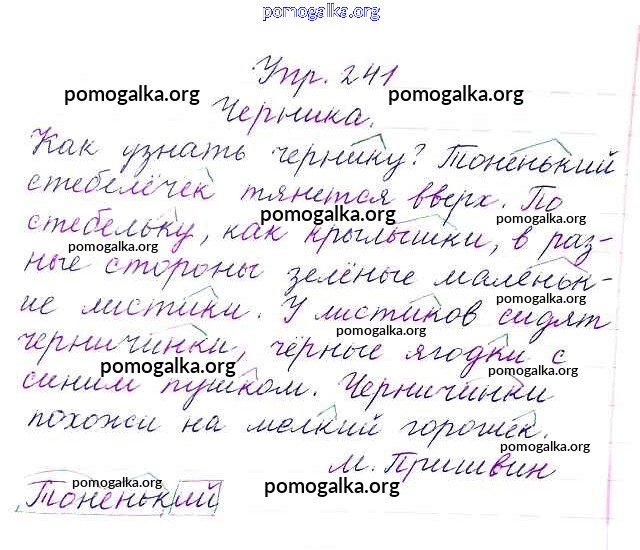 pomogalka.org
Упр. 241
pomogalka.org pomogalka.org
Черника.
Как узнать чернику? Тоненький
стебелёчек тянется вверх. По
pomogalka.org pomogalka.org
стебельку, как крылышки, в раз-
pomogalka.org pomogalka.org
ные стороны зелёные маленьк-
pomogalka.org
ие листики. У листиков сидят
pomogalka.org
черничинки, чёрные ягодки с
pomogalka.org pomogalka.org
синим пушком. Черничинки
похожи на мелкий горошек.
pomogalka.org
М. Пришвин
pomogalka.org
Тоненький
pomogalka.org